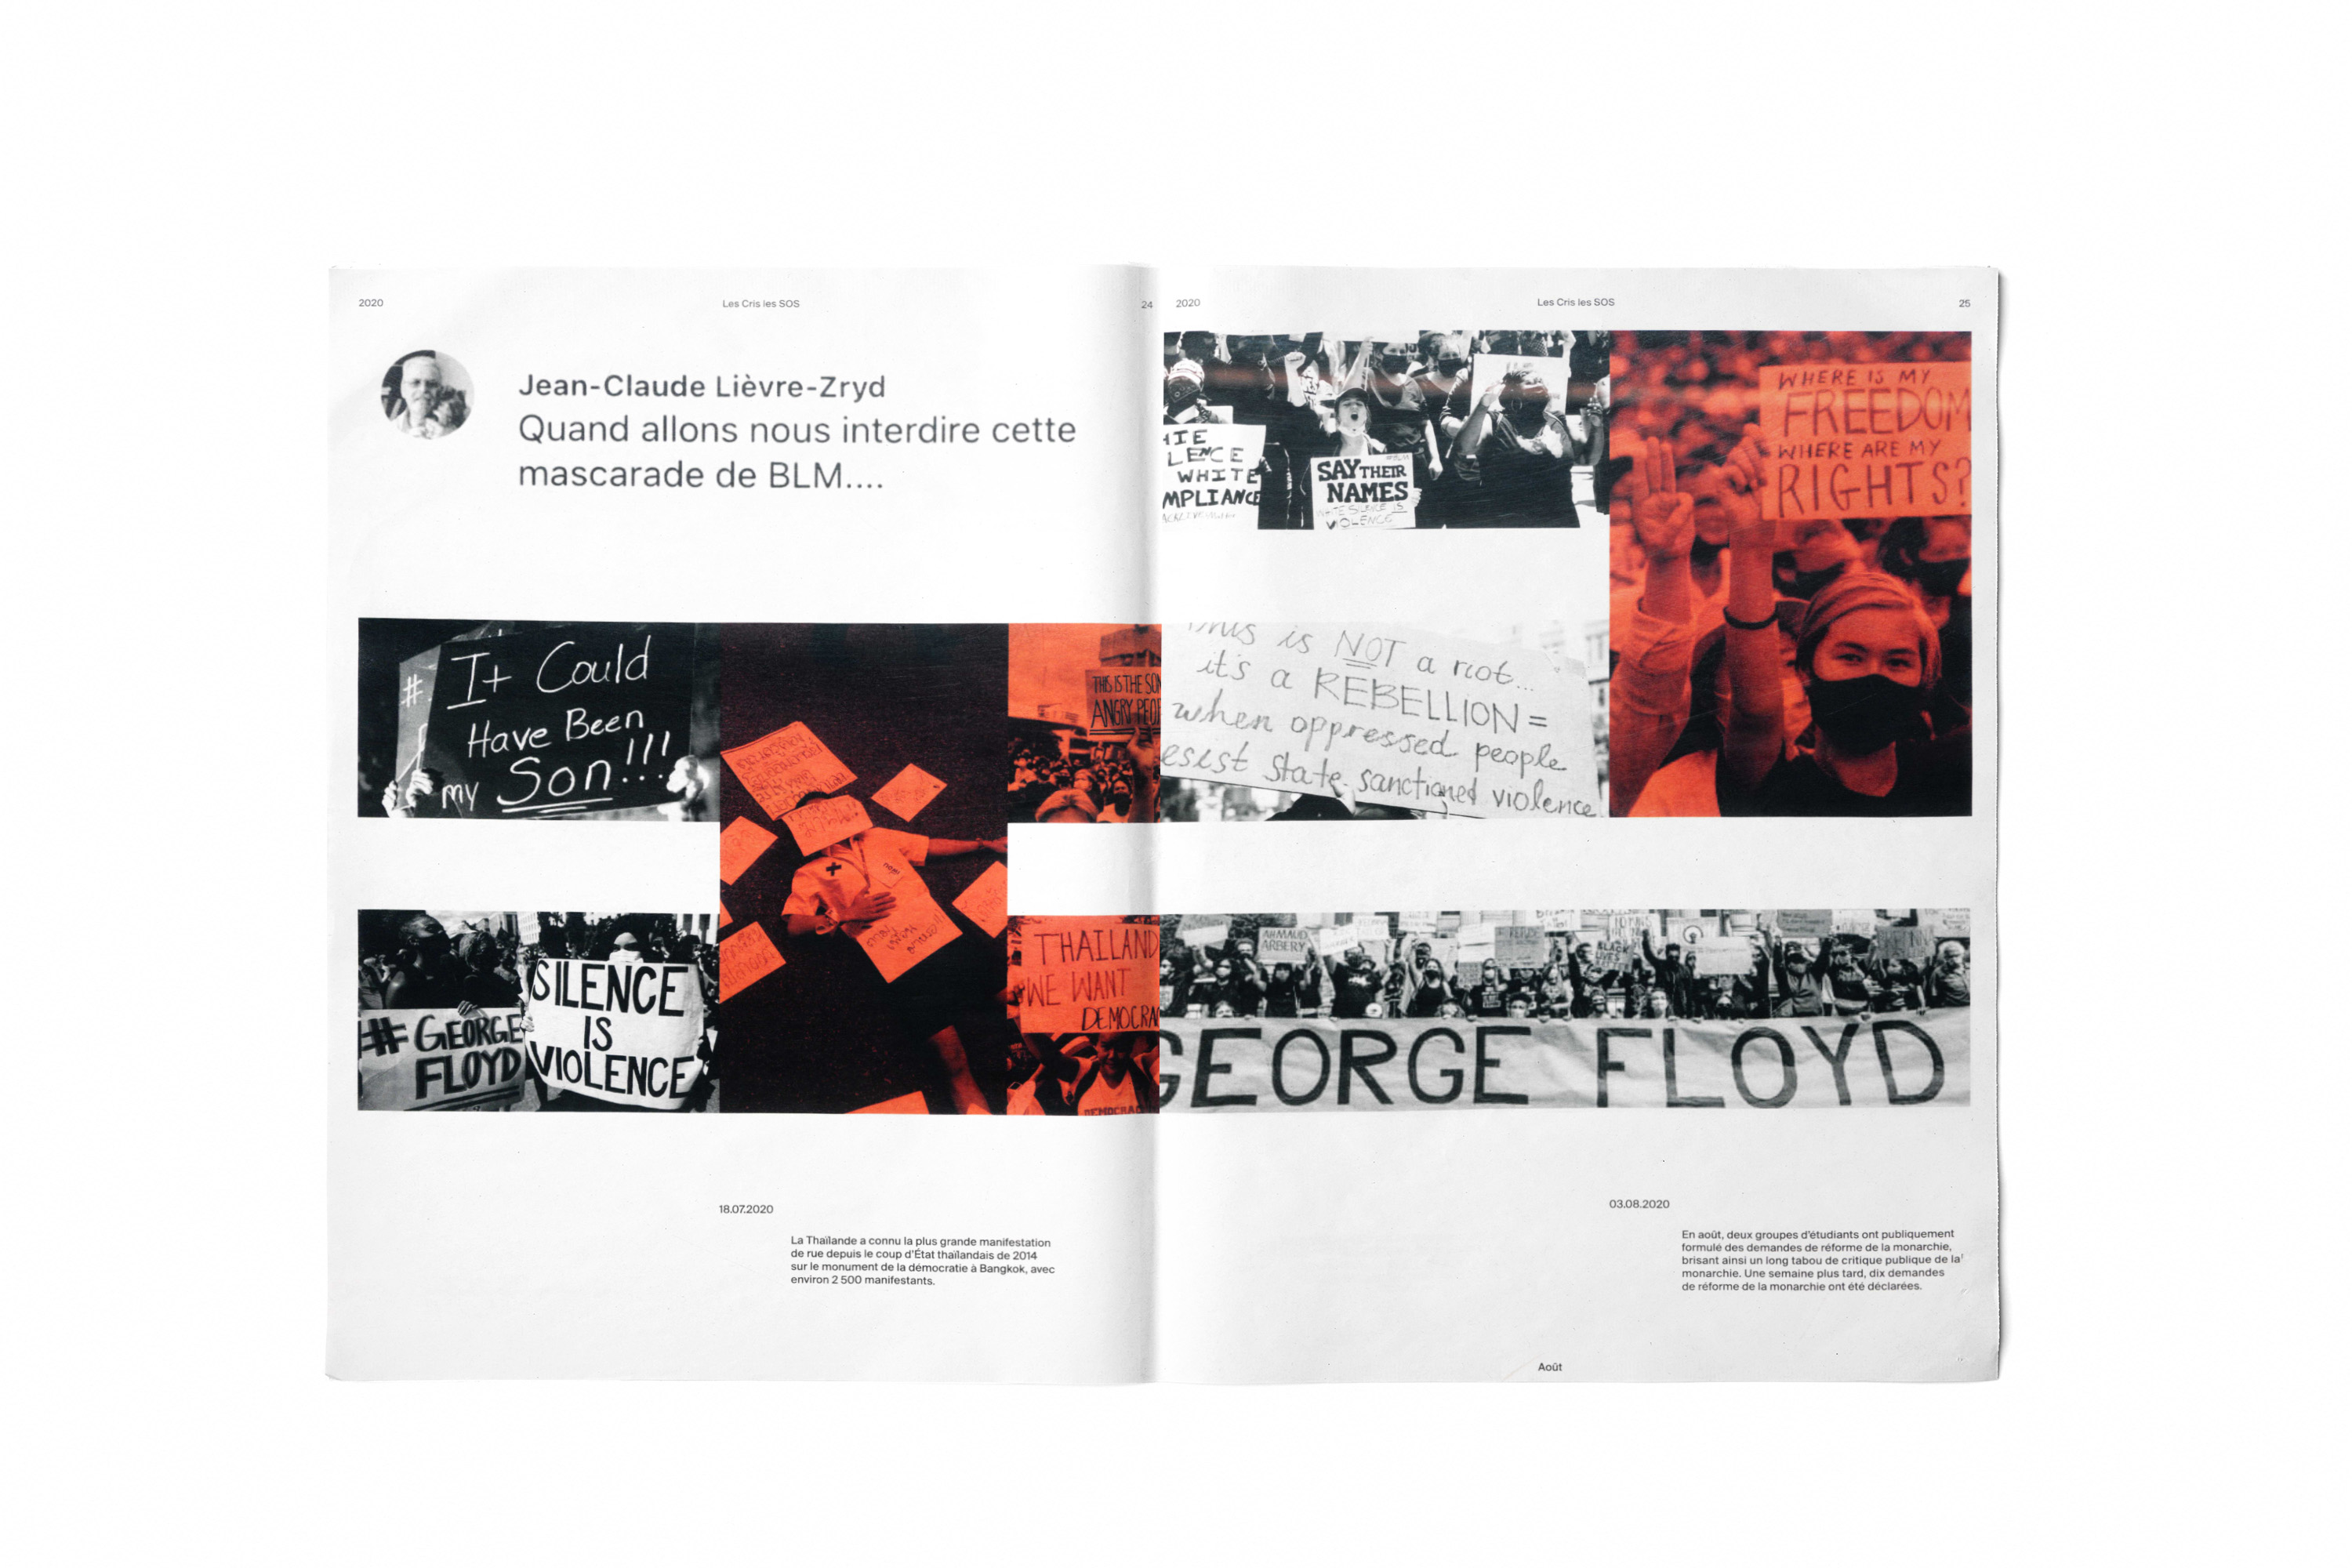 2020
Les Cris les SOS
24
Jean-Claude Lièvre-Zryd
Quand allons nous interdire cette
mascarade de BLM....
#
It Could
Have Been
my Son!!!
THIS IS THE
ANGRY
# GEORGE
FLOYD
SILENCE
IS
VIOLENCE
THAILAND
WE WANT
DEMOCRA
18.07.2020
La Thaïlande a connu la plus grande manifestation
de rue depuis le coup d'État thaïlandais de 2014
sur le monument de la démocratie à Bangkok, avec
environ 2 500 manifestants.
2020
Les Cris les SOS
25
HIE
LENCE
WHITE
MPLIANCE
SAY THEIR
NAMES
WHITE SILENCE IS
VIOLENCE
WHERE IS MY
FREEDOM
WHERE ARE MY
RIGHTS?
This is NOT a riot...
it's a REBELLION =
when oppressed people
esist state-sanctioned violence
AHMAUD
ARBERY
BLACK
LIVES
GEORGE FLOYD
03.08.2020
En août, deux groupes d'étudiants ont publiquement
formulé des demandes de réforme de la monarchie,
brisant ainsi un long tabou de critique publique de la
monarchie. Une semaine plus tard, dix demandes
de réforme de la monarchie ont été déclarées.
Août